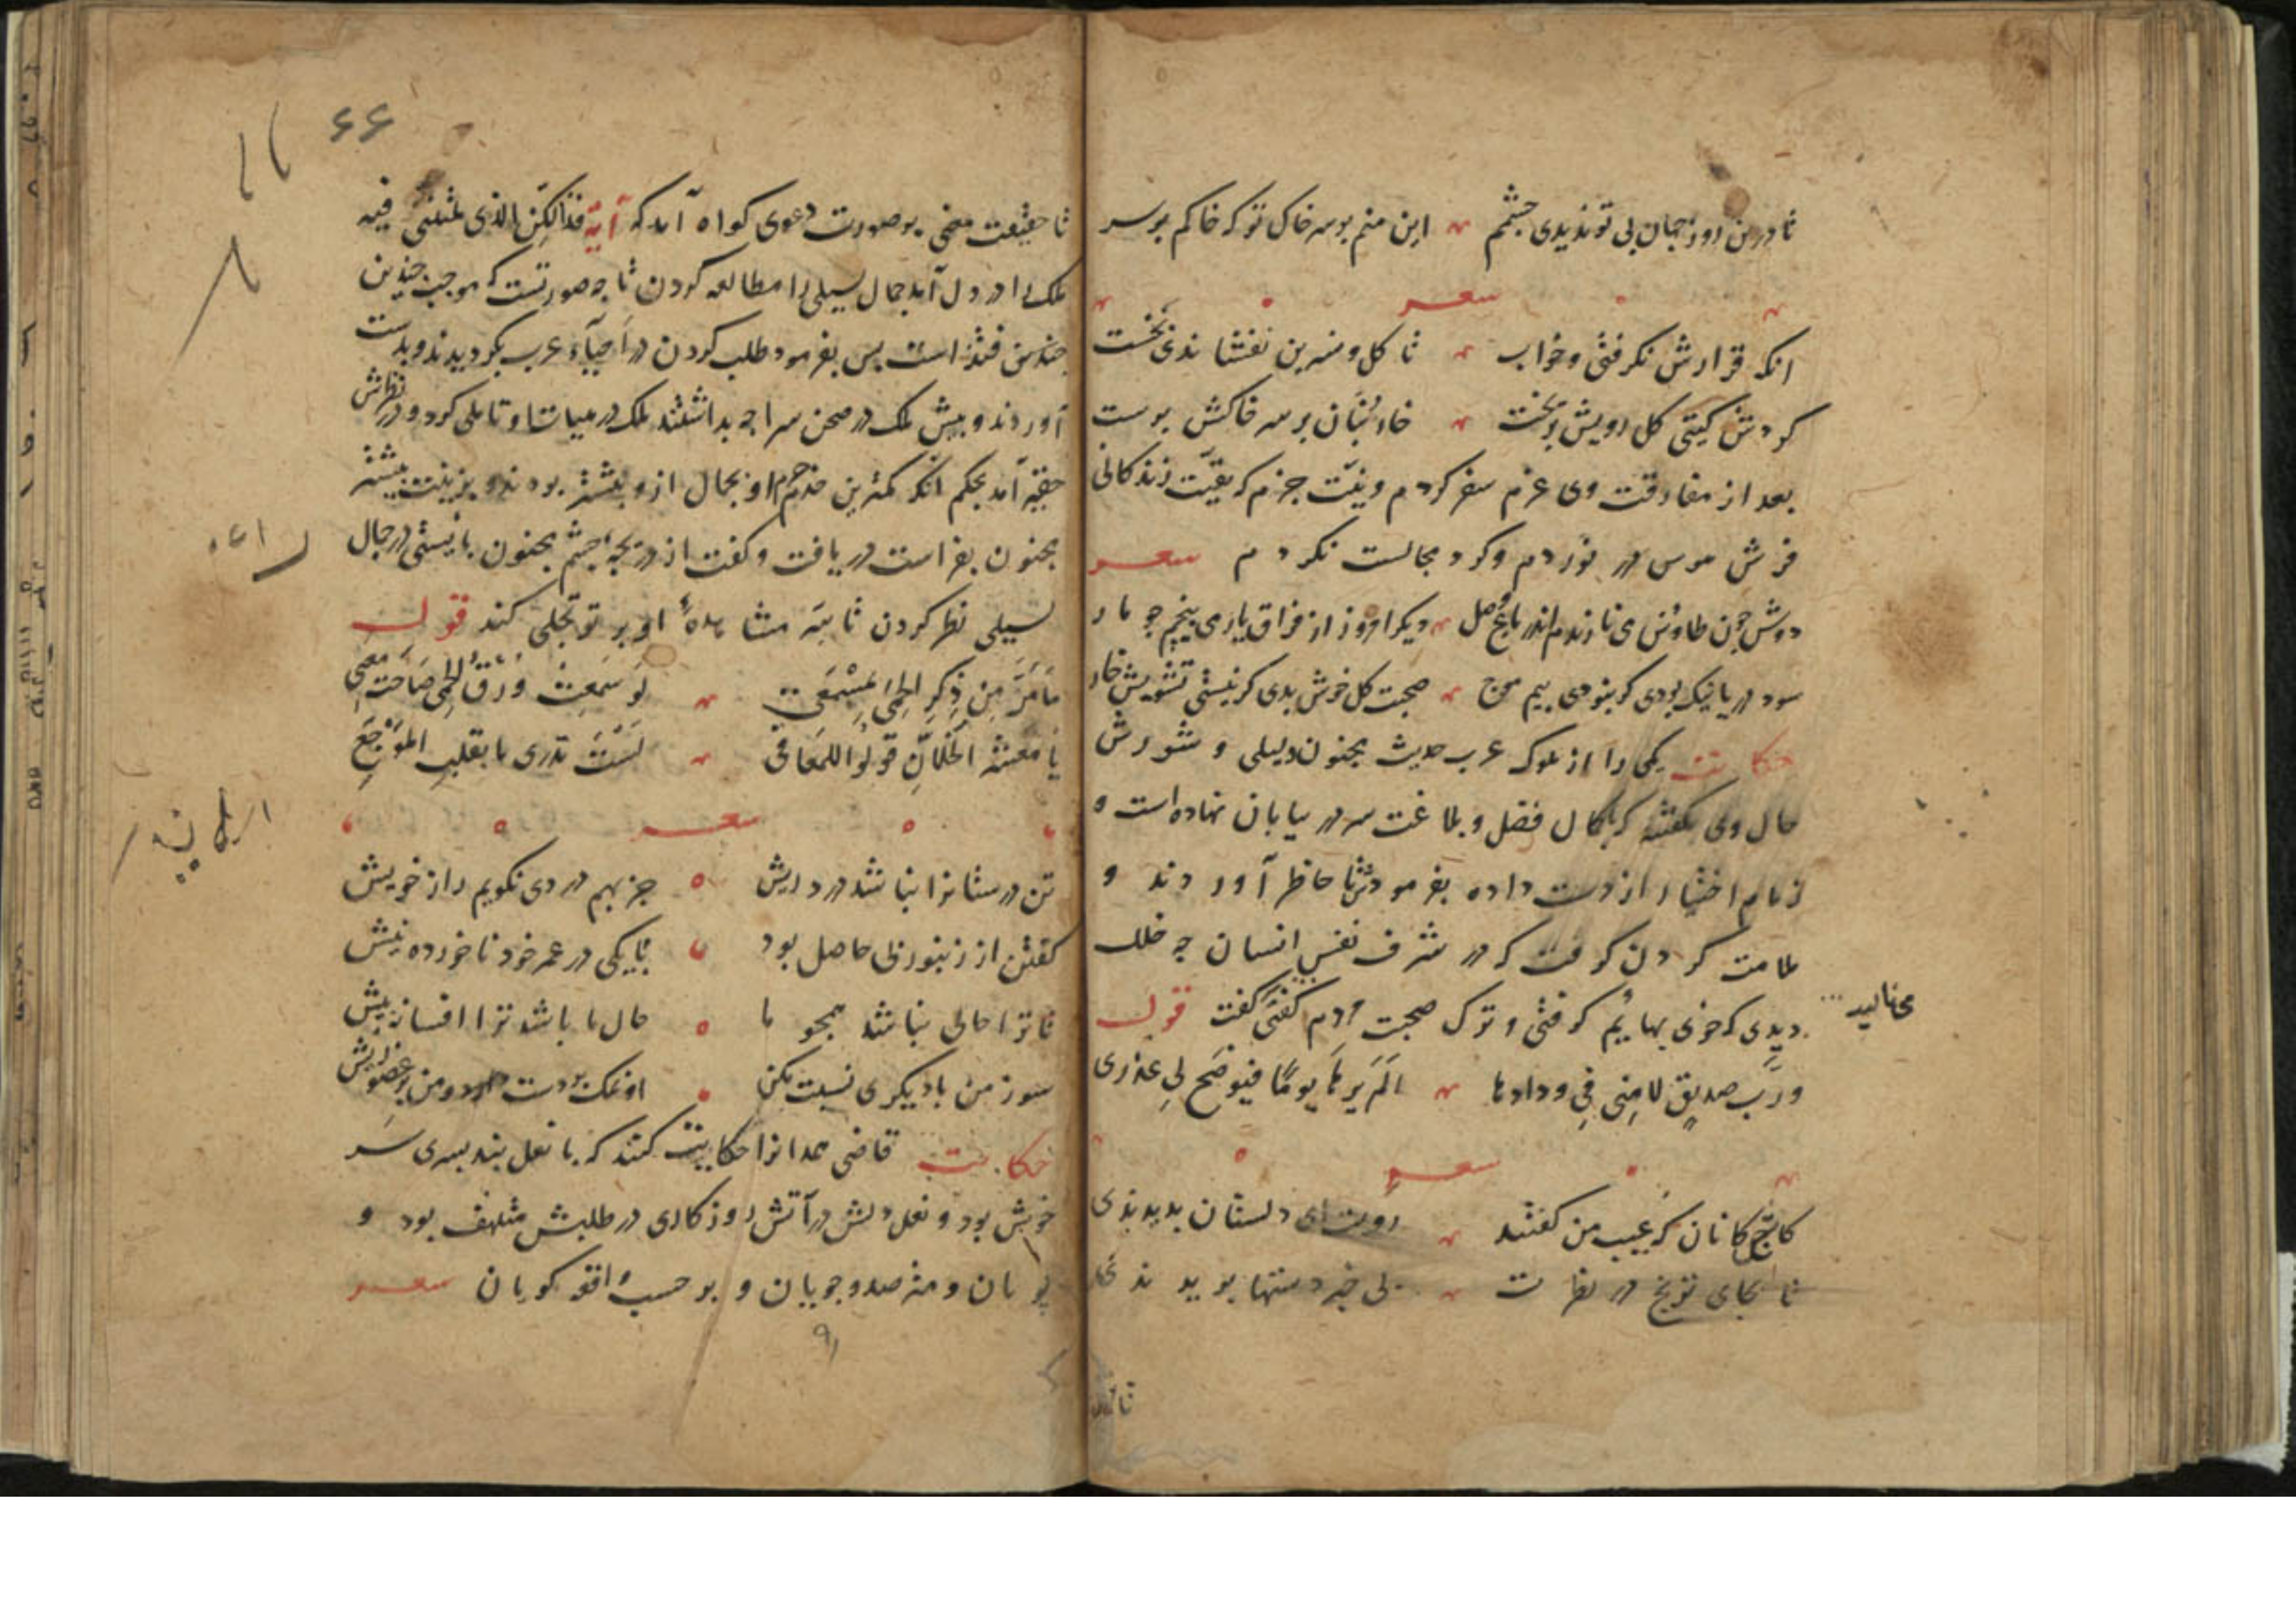 تا درین روز جهان بی تو ندیدی چشمم این منم بر سر خاک تو که خاکم بر سر
شعر
انکه قرارش نکرفتی و خواب تا کل و نسرین نفشاندی نخست
کردش کیتی کل رویش بریخت خار بنان بر سر خاکش برست
بعد از مفارقت وی عزم سفر کردم و نیت جزم که بقیت زندکانی
فرش هوس در نوردم و کرد مجالست نکردم شعر
دوش چون طاوس می نازیدم اندر باغ وصل دیکر امروز از فراق یار می پیچم چو مار
سود دریا نیک بودی کر نبودی بیم موج صحبت کل خوش بدی کر نیستی تشویش خار
حکایت یکی را از ملوک عرب حدیث مجنون و لیلی و شورش
حال وی بکفتند که با کمال فضل و بلاغت سر در بیابان نهاده است و
زمام اختیار از دست داده بفرمودش تا حاظر آوردند و
ملامت کردن کرفت که در شرف نفس انسان چه خلل
دیدی که خوی بهایم کرفتی و ترک صحبت مردم کفتی کفت قول
ورب صدیق لامنی فی ودادها الم یرها یوما فیوضح لی عذری
شعر
کاج کانان که عیب من کفتند رویت ای دلستان بدیدندی
تا بجای ترنج در نظرت بی خبر دستها بریدندی
تا حقیقت معنی بر صورت دعوی کواه آمد که آیة فذالکن الذی لمتننی فیه
ملک را در دل آمد جمال لیلی را مطالعه کردن تا چه صورتست که موجب چندین
فتنه است پس بفرمود طلب کردن در احیاء عرب بکردیدند و بدست
آوردند و پیش ملک در صحن سراچه بداشتند ملک در هیات او تاملی کرد و در نظرش
حقیر آمد بحکم انکه کمترین خدم حرم او بجمال ازو بیشتر بودند و بزینت بیشتر
مجنون بفراست دریافت و کفت از دریچه چشم مجنون بایستی در جمال
لیلی نظر کردن تا سر مشاهدهٔ او بر تو تجلی کند قول
ما مر من ذکر الحمی بمسمعی لو سمعت ورق الحمی صاحت معی
یا معشر الخلان قولوا للمعافی لست تدری ما بقلب الموجع
شعر
تن درستانرا نباشد درد ریش جز بهم دردی نکویم راز خویش
کفتن از زنبور بی حاصل بود با یکی در عمر خود ناخورده نیش
تا ترا حالی نباشد همجو ما حال ما باشد ترا افسانه پیش
سوز من با دیکری نسبت مکن او نمک بر دست و من بر عضو ریش
حکایت قاضی همدانرا حکایت کنند که با نعل بند پسری سر
خوش بود و نعل دلش در آتش روزکاری در طلبش متلهف بود و
پویان و مترصد و جویان و بر حسب واقعه کویان شعر
۶۶